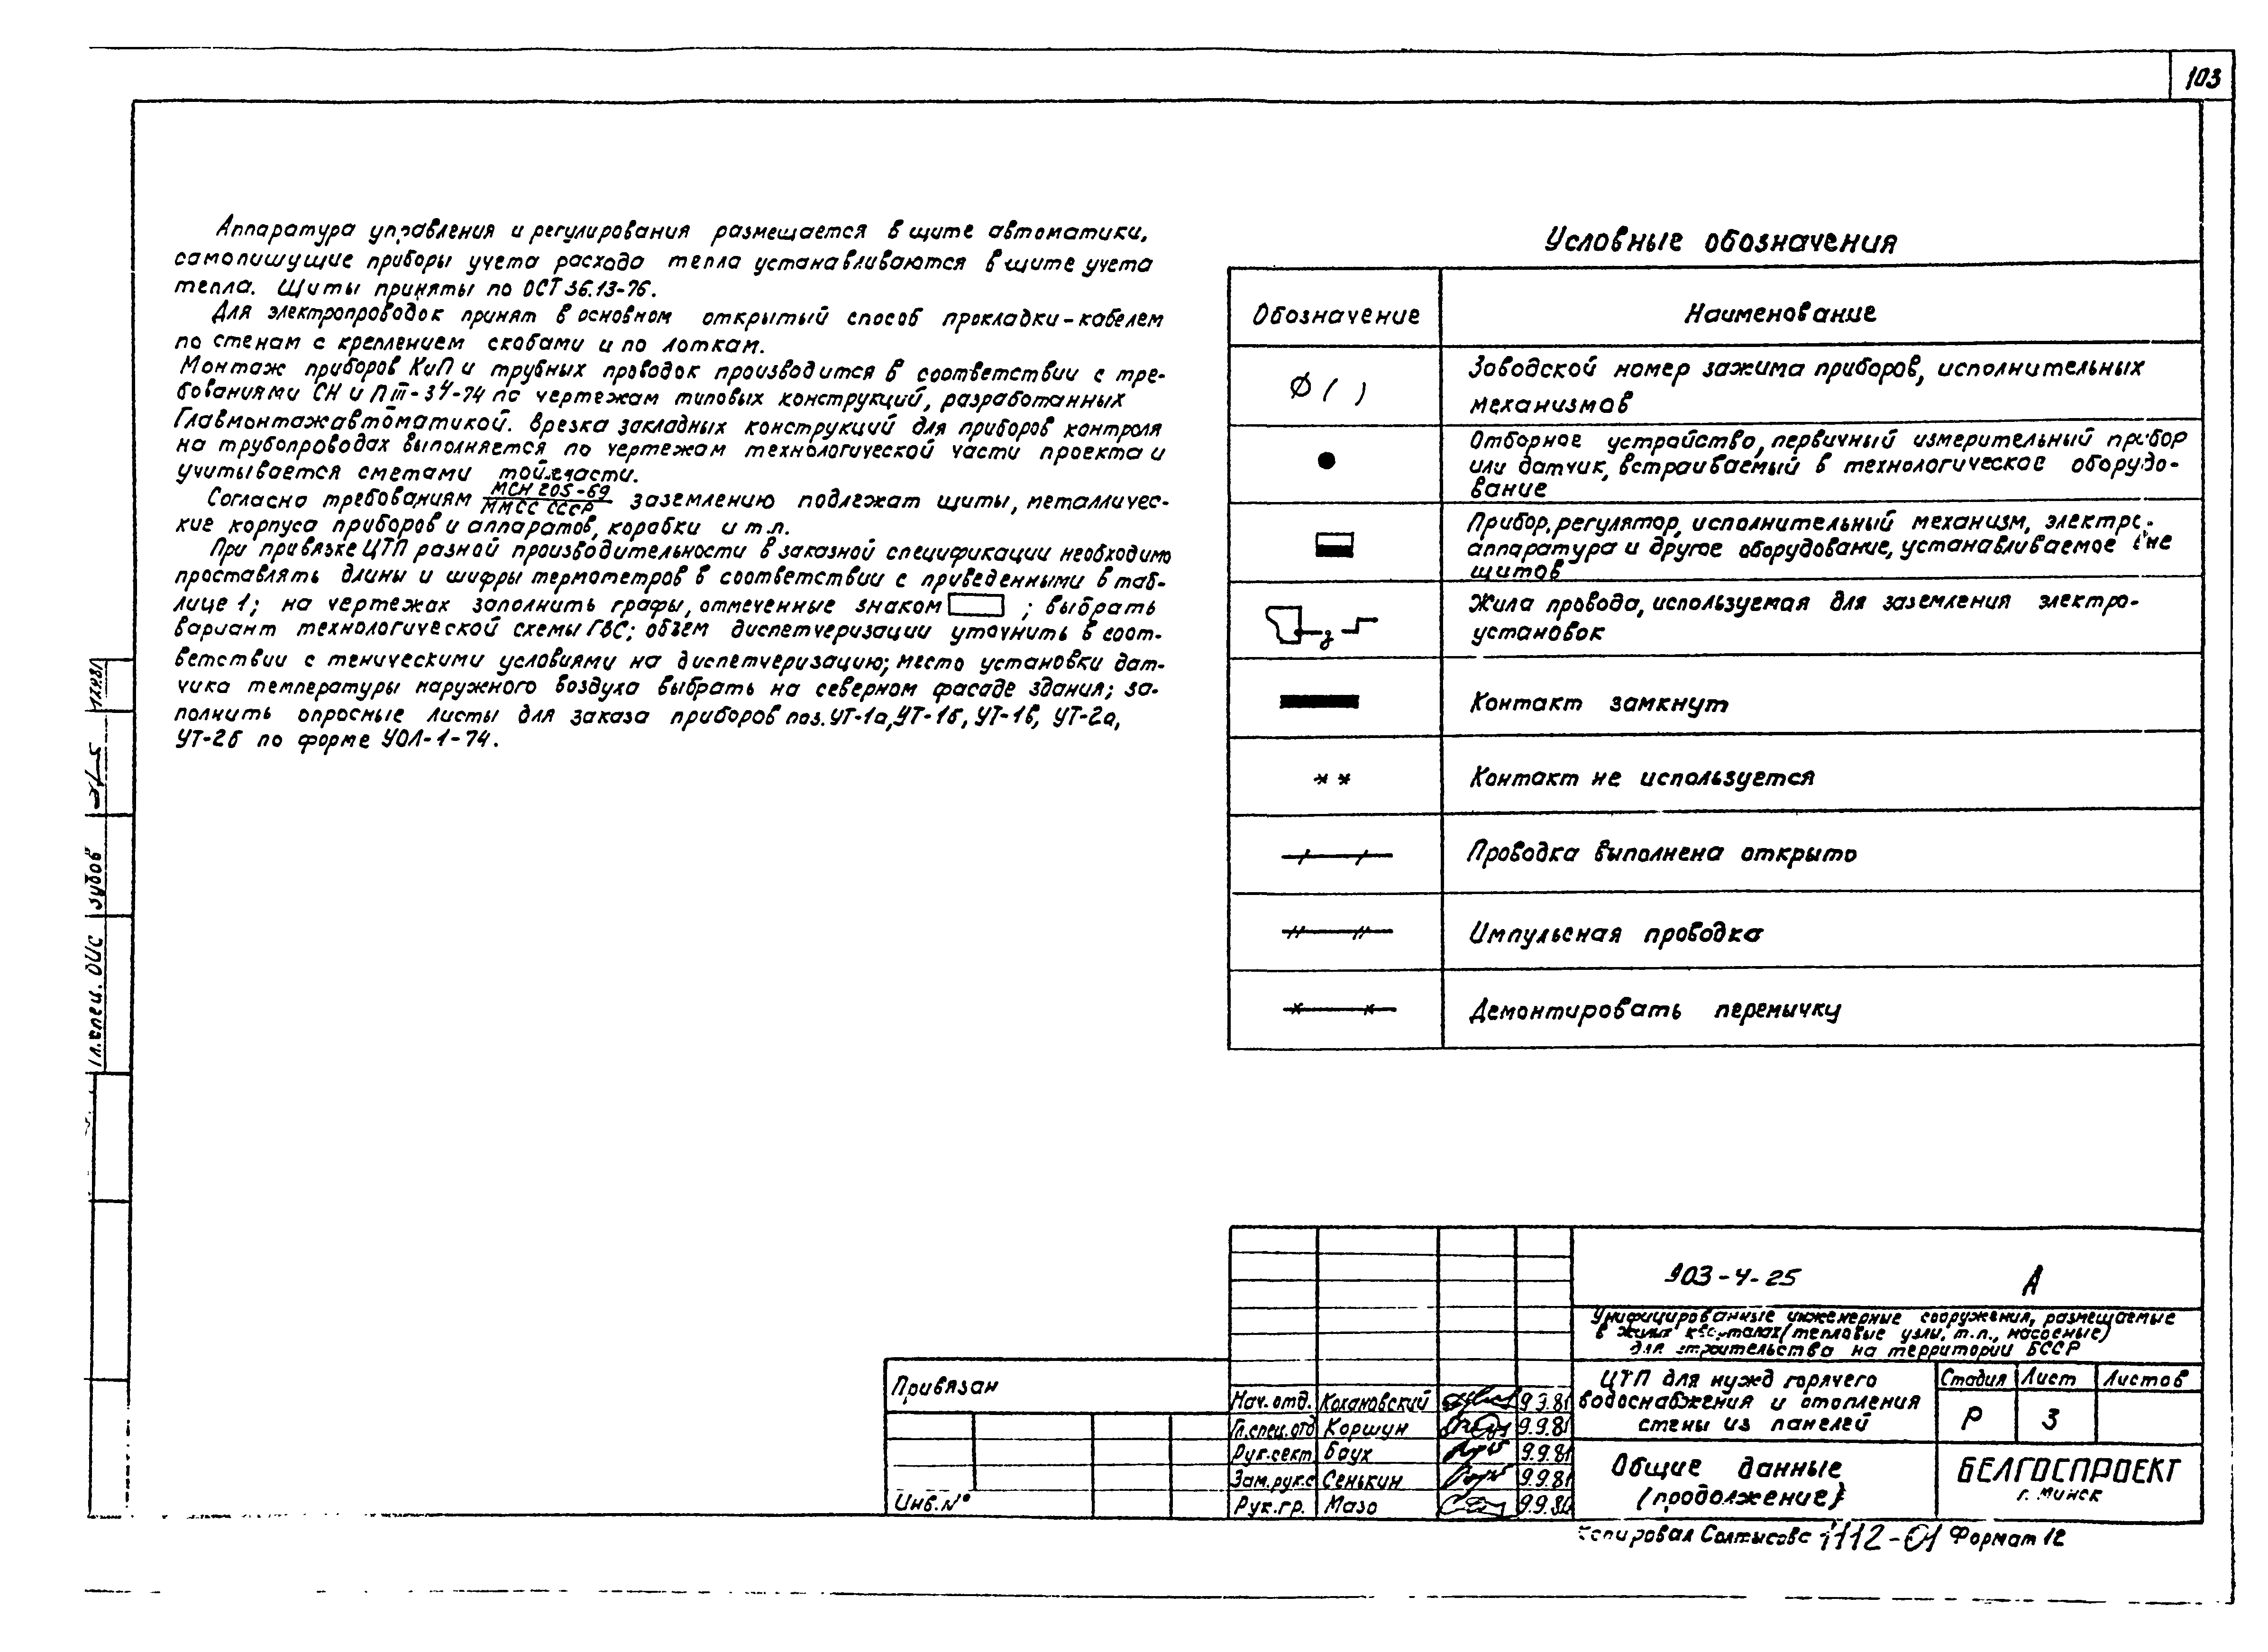 103
Аппаратура управления и регулирования размещается в щите автоматики,
самопишущие приборы учета расхода тепла устанавливаются в щите учета
тепла. Щиты приняты по ОСТ 36.13-76.
Для электропроводок принят в основном открытый способ прокладки-кабелем
по стенам с креплением скобами и по лоткам.
Монтаж приборов КиП и трубных проводок производится в соответствии с тре-
бованиями СН и П III-34-74 по чертежам типовых конструкций, разработанных
Главмонтажавтоматикой. Врезка закладных конструкций для приборов контроля
на трубопроводах выполняется по чертежам технологической части проекта и
учитывается сметами той части.
Согласно требованиям МСН 205-69 / ММСС СССР заземлению подлежат щиты, металличес-
кие корпуса приборов и аппаратов, коробки и т.п.
При привязке ЦТП разной производительности в заказной спецификации необходимо
проставлять длины и шифры термометров в соответствии с приведенными в таб-
лице 1; на чертежах заполнить графы, отмеченные знаком ; выбрать
вариант технологической схемы ГВС; объем диспетчеризации уточнить в соот-
ветствии с теническими условиями на диспетчеризацию; место установки дат-
чика температуры наружного воздуха выбрать на северном фасаде здания; за-
полнить опросные листы для заказа приборов поз. УТ-1а, УТ-1б, УТ-1в, УТ-2а,
УТ-2б по форме УОЛ-1-74.
Условные обозначения
Обозначение Наименование
Ø ( ) Заводской номер зажима приборов, исполнительных
механизмов
Отборное устройство, первичный измерительный прибор
или датчик, встраиваемый в технологическое оборудо-
вание
Прибор, регулятор, исполнительный механизм, электро-
аппаратура и другое оборудование, устанавливаемое вне
щитов
Жила провода, используемая для заземления электро-
установок
Контакт замкнут
Контакт не используется
Проводка выполнена открыто
Импульсная проводка
Демонтировать перемычку
Гл.спец. ОИС Зубов
903-4-25 А
Унифицированные инженерные сооружения, размещаемые
в жилых кварталах (тепловые узлы, т.п., насосные)
для строительства на территории БССР
ЦТП для нужд горячего
водоснабжения и отопления
стены из панелей
Стадия Лист Листов
Р 3
Общие данные
(продолжение)
БЕЛГОСПРОЕКТ
г. Минск
Привязан
Инв.№
Нач. отд. Кохановский 9.9.81
Гл.спец.отд Коршун 9.9.81
Рук.сект Баух 9.9.81
Зам.рук.с Сенькин 9.9.81
Рук.гр. Мазо
Копировал Солтысова 1112-01 Формат 12